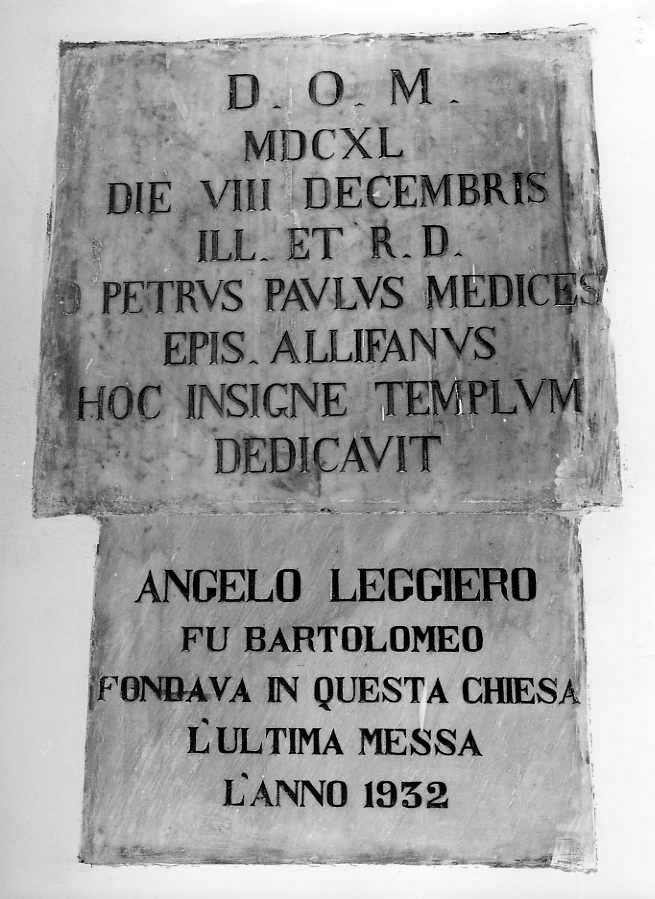 D. O. M.
MDCXL
DIE VIII DECEMBRIS
ILL. ET R. D.
D PETRVS PAVLVS MEDICES
EPIS. ALLIFANVS
HOC INSIGNE TEMPLVM
DEDICAVIT
ANGELO LEGGIERO
FU BARTOLOMEO
FONDAVA IN QUESTA CHIESA
L'ULTIMA MESSA
L'ANNO 1932